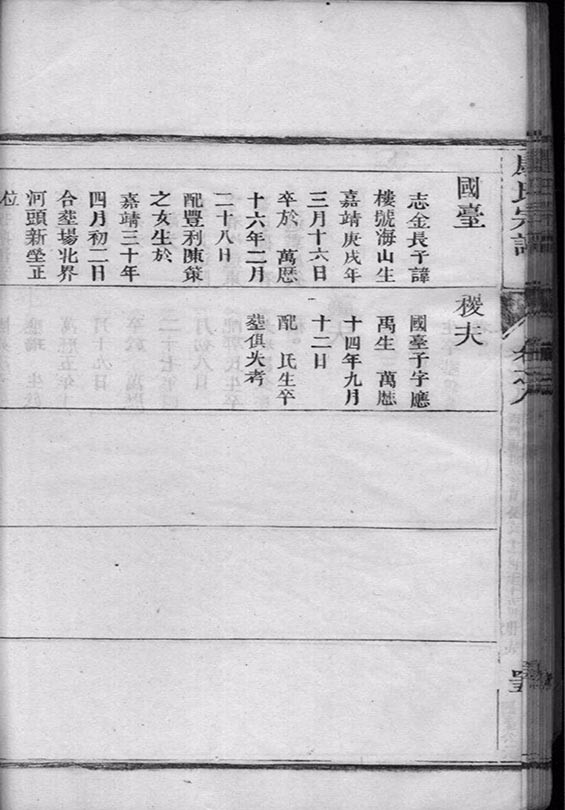 氏宗譜
國臺
志金長子諱
樓號海山生
嘉靖庚戌年
三月十六日
卒於 萬厯
十六年二月
二十八日
配豐利陳策
之女生於
嘉靖三十年
四月初二日
合塟場北界
河頭新塋正
位
稷夫
國臺子字應
禹生 萬厯
十四年九月
十二日
配 氏生卒
塟俱失考